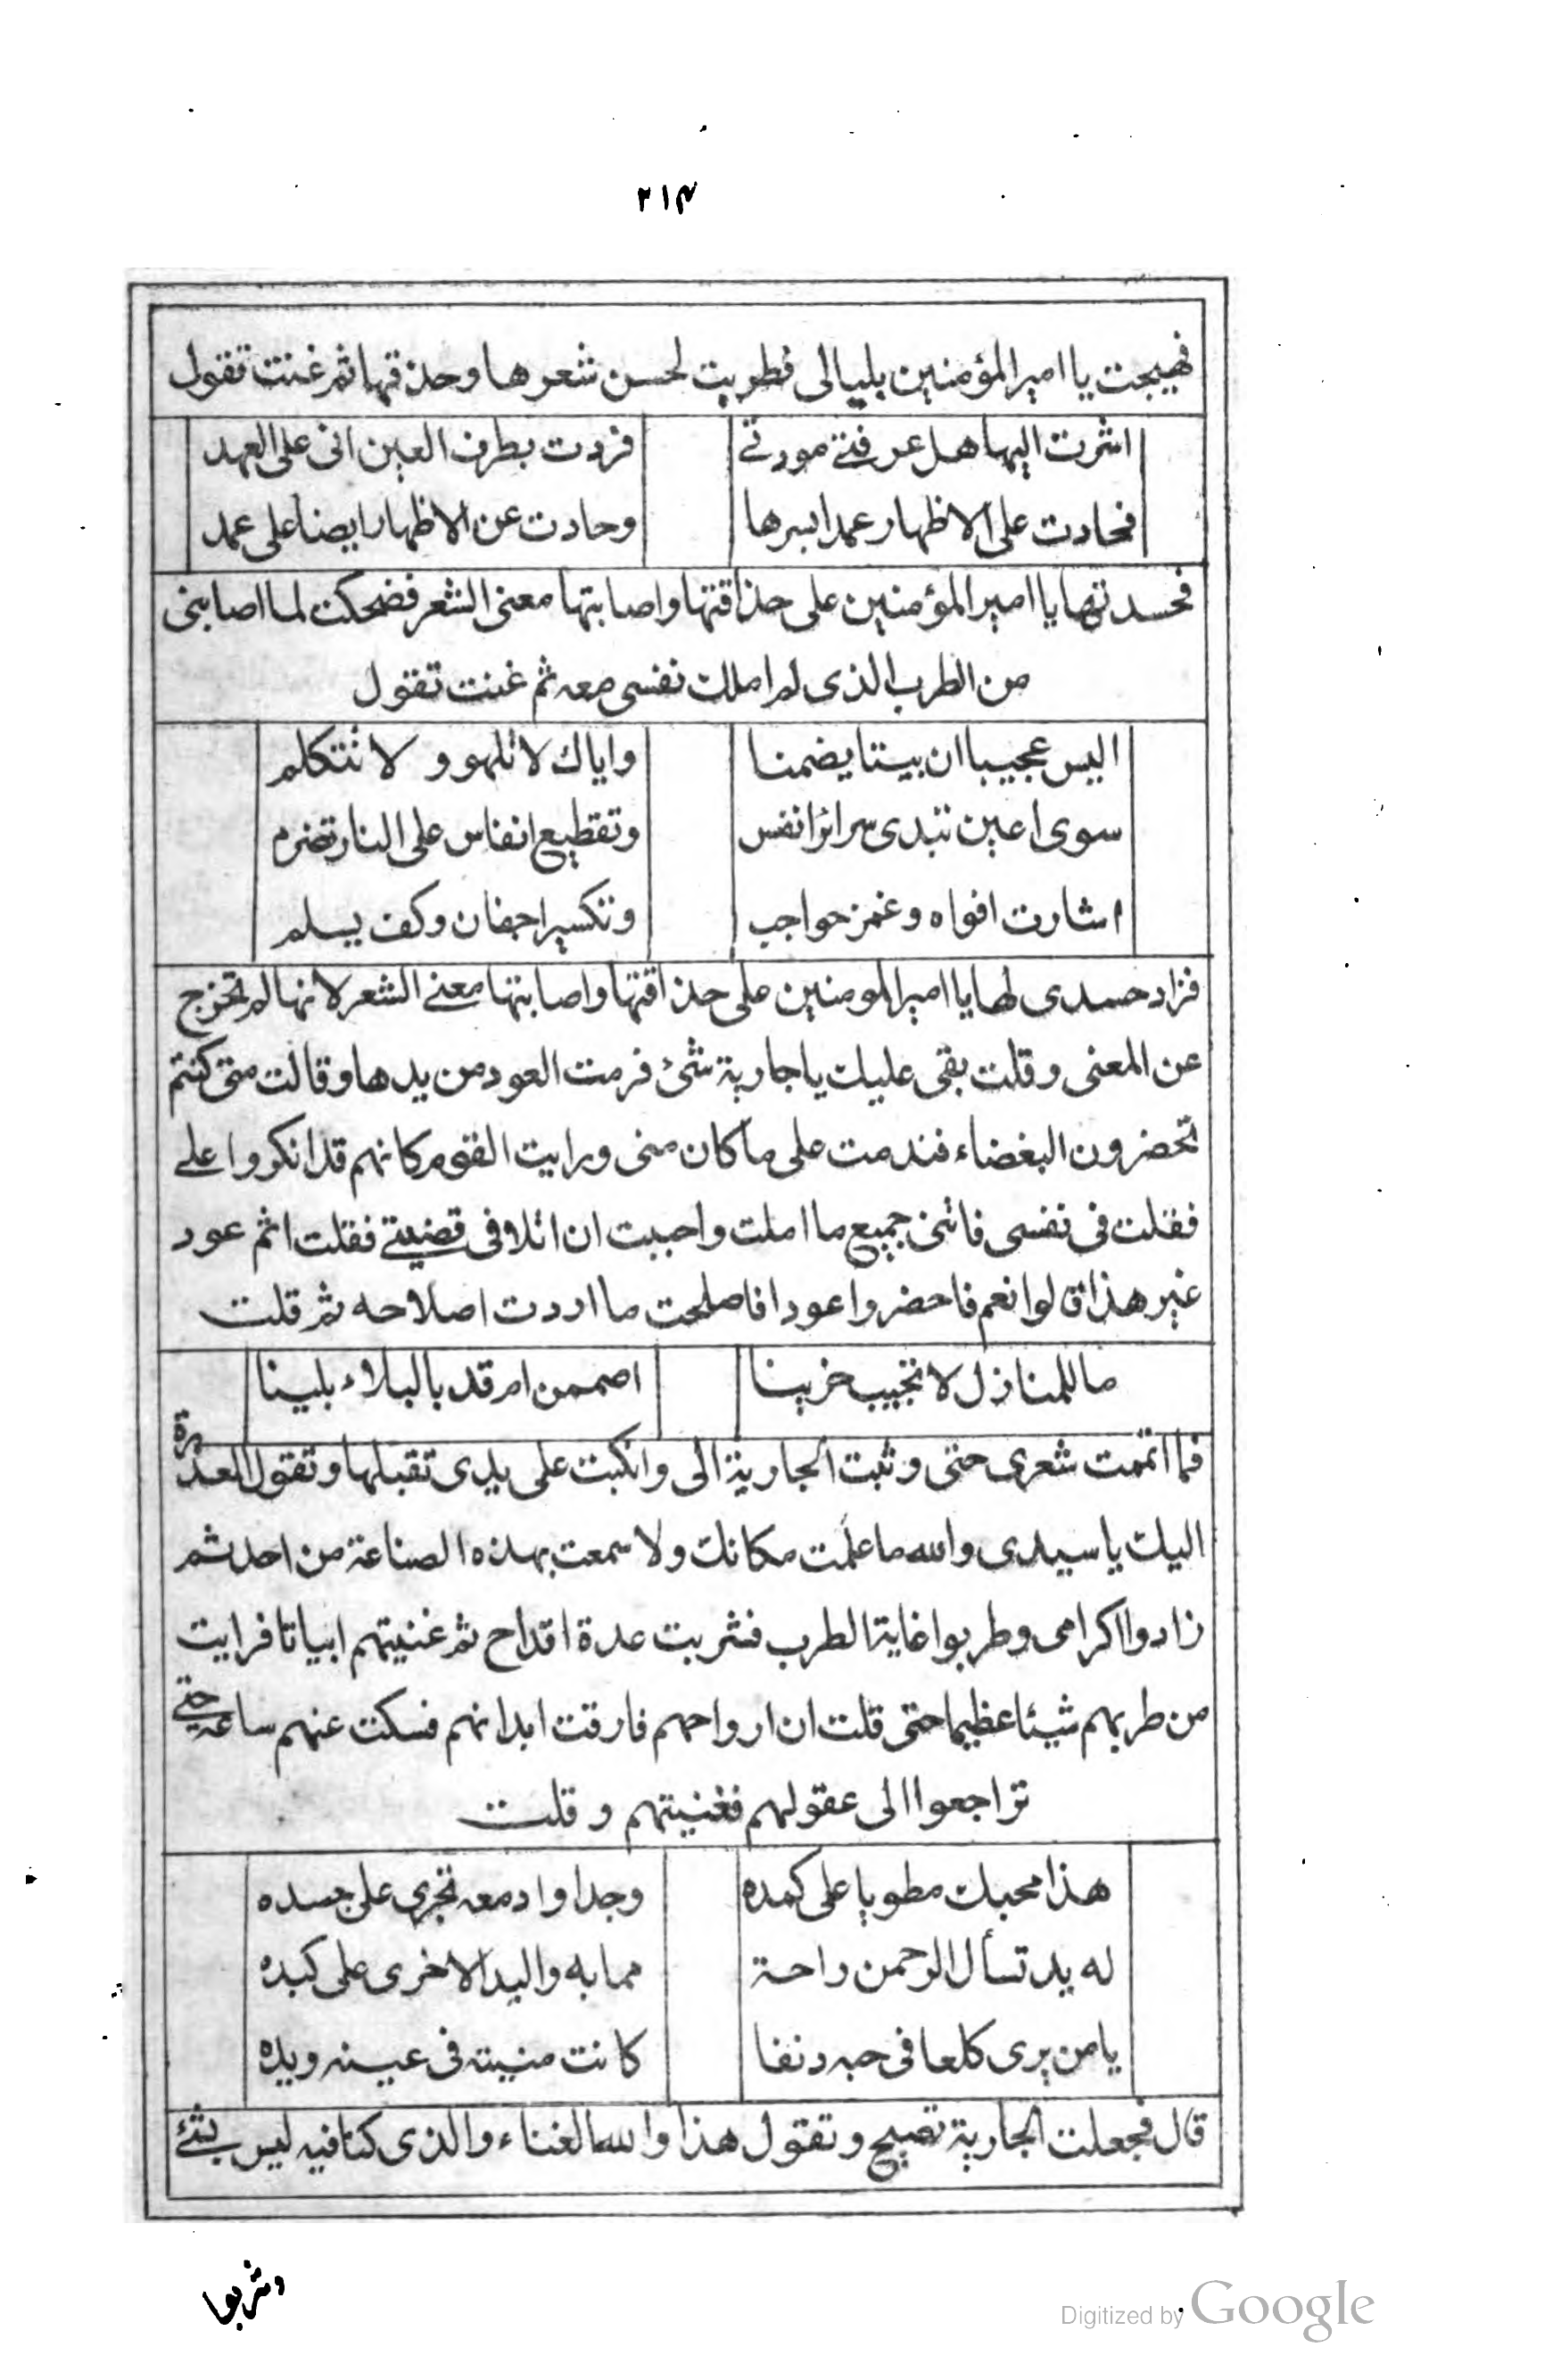 ٢١٣
فهيجت يا امير المؤمنين بليالى فطربت لحسن شعرها وحذقها ثم غنت تقول
اشرت اليها هل عرفتى مودتى فردت بطرف العين انى على العهد
فحادت على الاظهار عمدا بسرها وحادت عن الاظهار ايضا على عمد
فحسدتها يا امير المؤمنين على حذاقتها واصابتها معنى الشعر فضحكت لما اصابنى
من الطرب الذى لم املك نفسى معه ثم غنت تقول
اليس عجيبا ان بيتا يضمنا واياك لا نلهو و لا نتكلم
سوى اعين تبدى سرائر انفس وتقطيع انفاس على النار تضرم
اشارت افواه وغمز حواجب وتكسير اجفان وكف يسلم
فزاد حسدى لها يا امير المومنين على حذاقتها واصابتها معنى الشعر لانها لم تخرج
عن المعنى وقلت بقى عليك يا جارية شئ فرمت العود من يدها وقالت متى كنتم
تحضرون البغضاء فندمت على ما كان منى ورايت القوم كانهم قد انكروا على
فقلت فى نفسى فاتنى جميع ما املت واحببت ان اتلافى قضيتى فقلت اثم عود
غير هذا قالوا نعم فاحضروا عودا فاصلحت ما اردت اصلاحه ثم قلت
ما للمنازل لا تجيب حزينا اصممن ام قد بالبلاء بلينا
فما اتممت شعرى حتى وثبت الجارية الى وانكبت على يدى تقبلها وتقول المعذرة
اليك يا سيدى والله ما علمت مكانك ولا سمعت بهذه الصناعة من احد ثم
زادوا اكرامى وطربوا غاية الطرب فشربت عدة اقداح ثم غنيتهم ابياتا فرايت
من طربهم شيئا عظيما حتى قلت ان ارواحهم فارقت ابدانهم فسكت عنهم ساعة حتى
تراجعوا الى عقولهم فغنيتهم و قلت
هذا محبك مطويا على كمده وجدا وادمعه تجرى على جسده
له يد تسأل الرحمن راحة مما به واليد الاخرى على كبده
يا من يرى كلفا فى حبه دنفا كانت منيته فى عينه ويده
قال فجعلت الجارية تصيح وتقول هذا والله الغناء والذى كنا فيه ليس بشئ
وشربوا
Digitized by Google